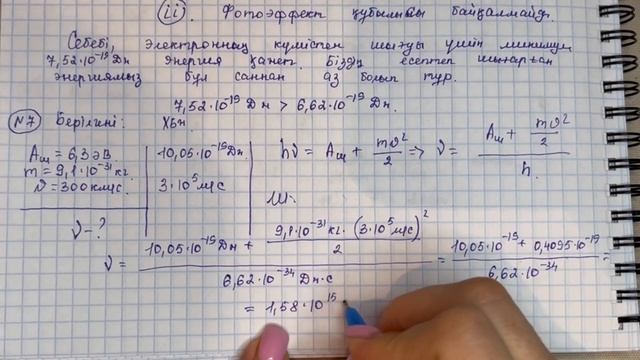 (ii). Фотоэффект құбылысы байқалмайды.
Себебі, электронның күмістен шығуы үшін минимум
7,52·10⁻¹⁹ Дж энергия қажет. Біздің есептеп шығарған
энергиямыз бұл саннан аз болып тұр.
7,52·10⁻¹⁹ Дж > 6,62·10⁻¹⁹ Дж.
№7 Берілгені: ХБЖ
A_ш = 6,3 эВ 10,05·10⁻¹⁹ Дж.
m = 9,1·10⁻³¹ кг.
υ = 300 км/с. 3·10⁵ м/с
hν = A_ш + mυ²/2 ⇒ ν = (A_ш + mυ²/2) / h.
Ш:
ν - ?
ν = (10,05·10⁻¹⁹ Дж + 9,1·10⁻³¹ кг·(3·10⁵ м/с)²/2) / (6,62·10⁻³⁴ Дж·с) = (10,05·10⁻¹⁹ + 0,4095·10⁻¹⁹) / (6,62·10⁻³⁴) =
= 1,58·10¹⁵